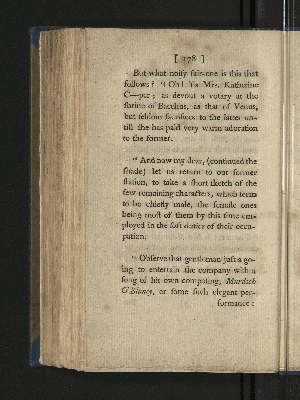 [ 178 ]
But what noiſy fair-one is this that
follows? "Oh! 'tis Mrs. Katherine
C—per; as devout a votary at the
ſhrine of Bacchus, as that of Venus,
but ſeldom ſacrifices to the latter un-
till ſhe has paid very warm adoration
to the former.
"And now my dear, (continued the
ſhade) let us return to our former
ſtation, to take a ſhort ſketch of the
few remaining characters, which ſeem
to be chiefly male, the female ones
being moſt of them by this time em-
ployed in the ſoft duties of their occu-
pation.
"Obſerve that gentleman juſt a go-
ing to entertain the company with a
ſong of his own compoſing, Murdoch
O'Blaney, or ſome ſuch elegant per-
formance: